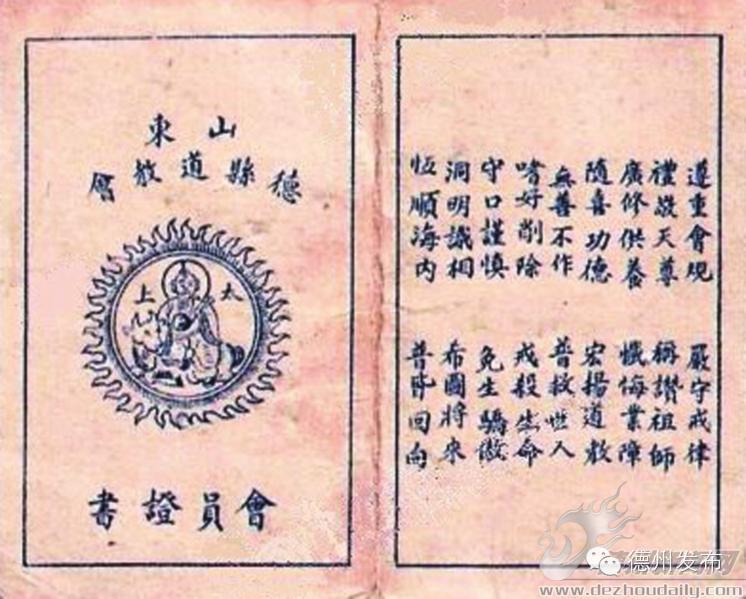 山東
德縣道教會
太上
會員證書
遵重會規 嚴守戒律
禮敬天尊 稱讚祖師
廣修供養 懺悔業障
隨喜功德 宏揚道教
無善不作 普救世人
嗜好削除 戒殺生命
守口謹慎 免生驕傲
洞明識相 希圖將來
恆順海內 普皆回向
德州发布
www.dezhoudaily.com